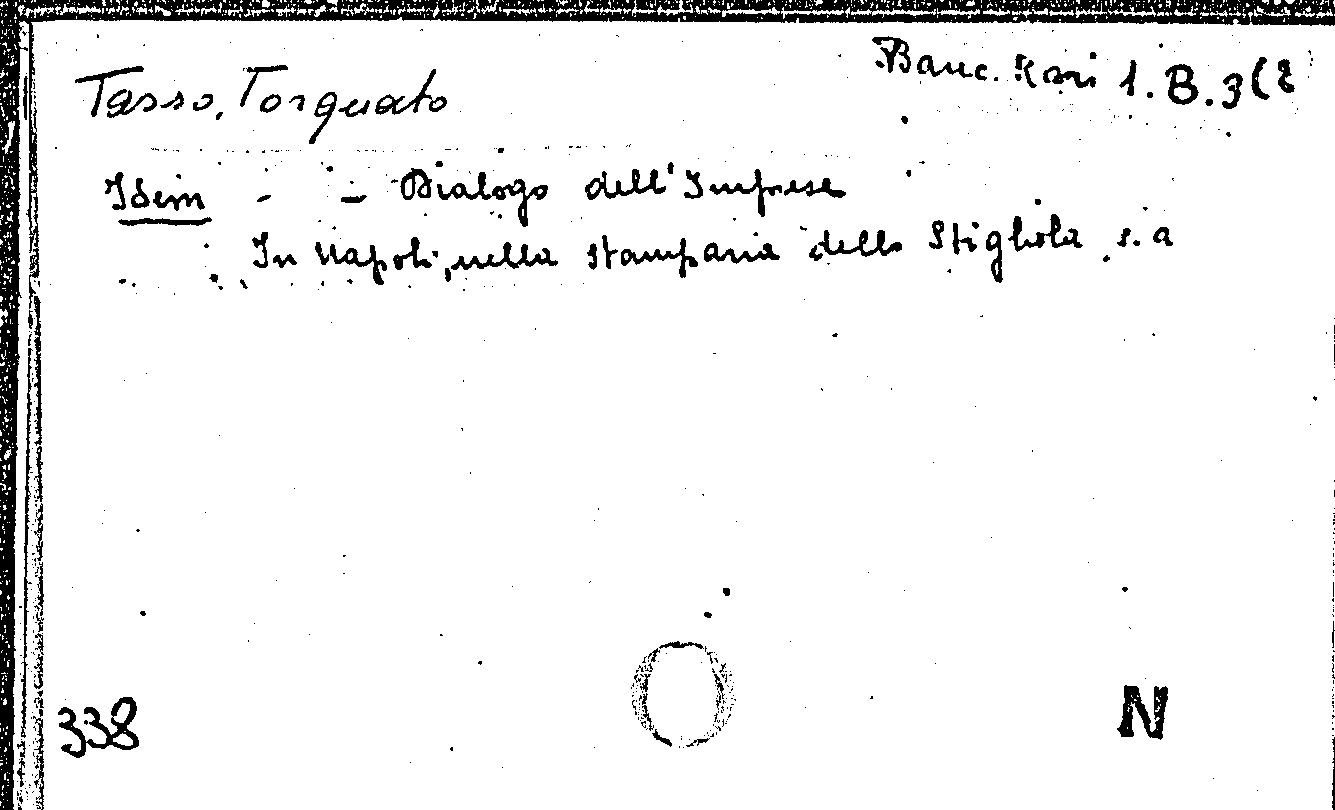 Banc. Rari 1.B.3(2
Tasso, Torquato
Idem - - Dialogo dell'Imprese
In Napoli, nella stamparia dello Stigliola s. a
338
N